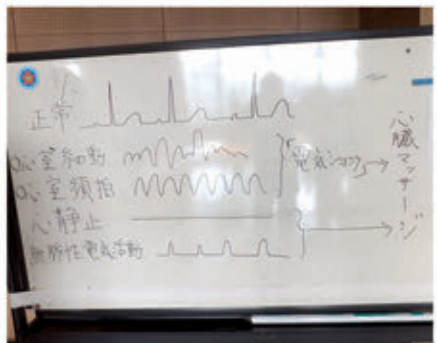 正常
心室細動
心室頻拍
心静止
無脈性電気活動
電気ショック
心臓マッサージ